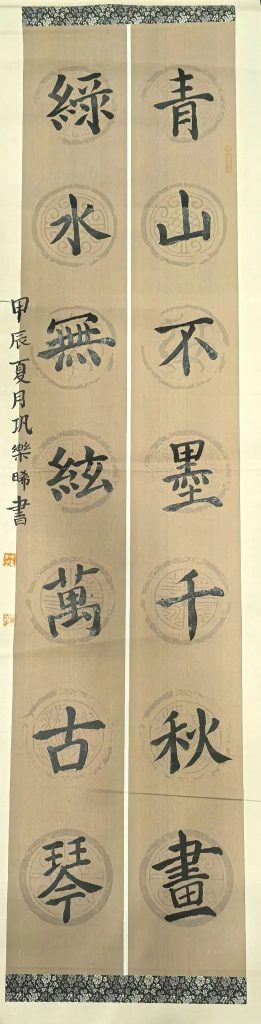 青山不墨千秋畫
綠水無絃萬古琴
甲辰夏月巩樂晞書